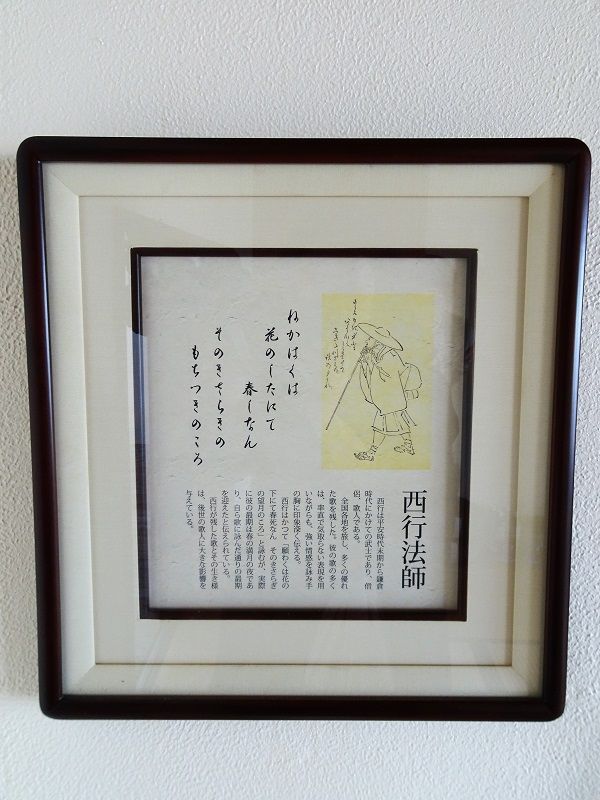 ねかはくは
花のしたにて
春しなん
そのきさらきの
もちつきのころ
西行法師
西行は平安時代末期から鎌倉
時代にかけての武士であり、僧
侶、歌人である。
全国各地を旅し、多くの優れ
た歌を残した。彼の歌の多く
は、率直で気取らない表現を用
いながらも、強い情感を詠み手
の胸に印象深く伝える。
西行はかつて「願わくは花の
下にて春死なん　そのきさらぎ
の望月のころ」と詠むが、実際
に彼の最期は春の満月の夜であ
り、自ら歌に詠んだ通りの最期
を迎えたと伝えられている。
西行が残した歌とその生き様
は、後世の歌人に大きな影響を
与えている。